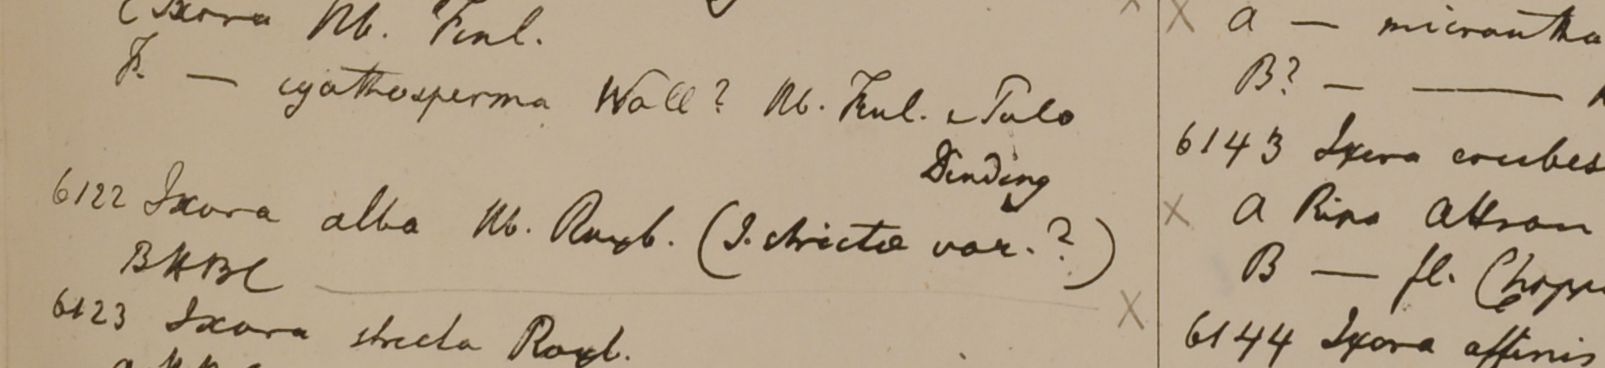 (Ixora Hb. Finl.
F. — cyathosperma Wall? Hb. Finl. e Pulo
Dinding
6122 Ixora alba Hb. Roxb. (I. stricta var.?)
BHBC
6123 Ixora stricta Roxb.
X a — micrantha
B? — —
6143 Ixora erubes
X a Ripa Attran
B — fl. Chapp
X
6144 Ixora affinis